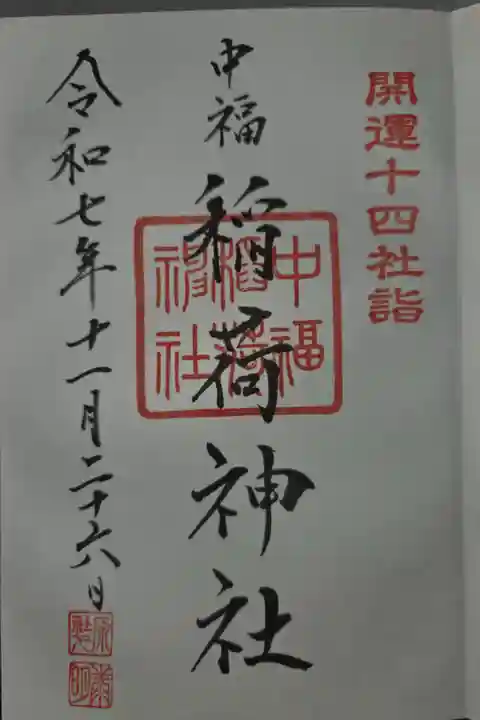 開運十四社詣
中福
稲荷神社
中福
稲荷
神社
令和七年十一月二十六日